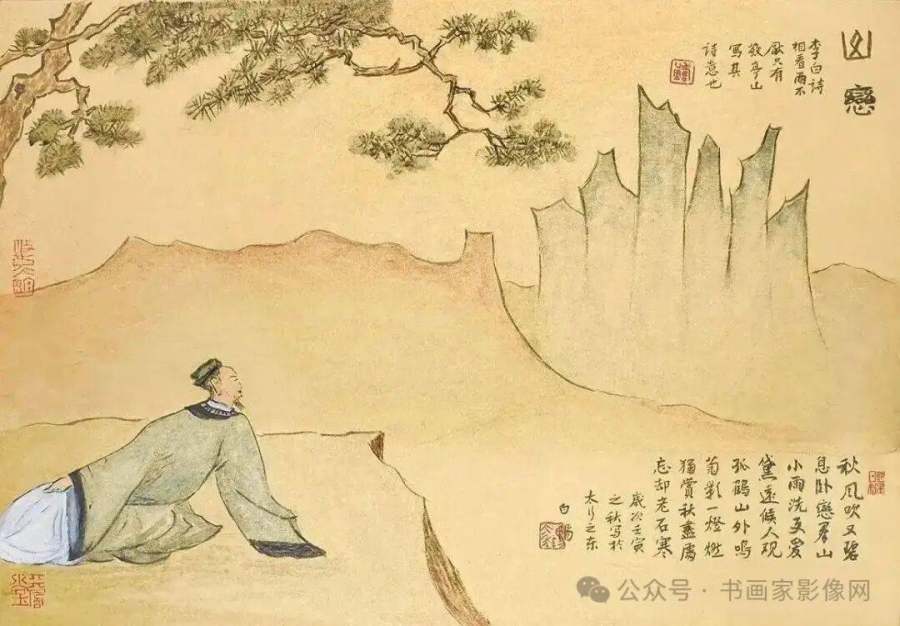 山戀
李白诗
相看兩不
厭只有
敬亭山
写其
诗意也
秋风吹又碧
息卧戀羣山
小雨洗爰
黛遠候人观
孤鶴山外鳴
菊影一燈燃
獨賞秋盡處
忘却老石寒
歲次壬寅
之秋写於
太行之东
白
公众号 · 书画家影像网